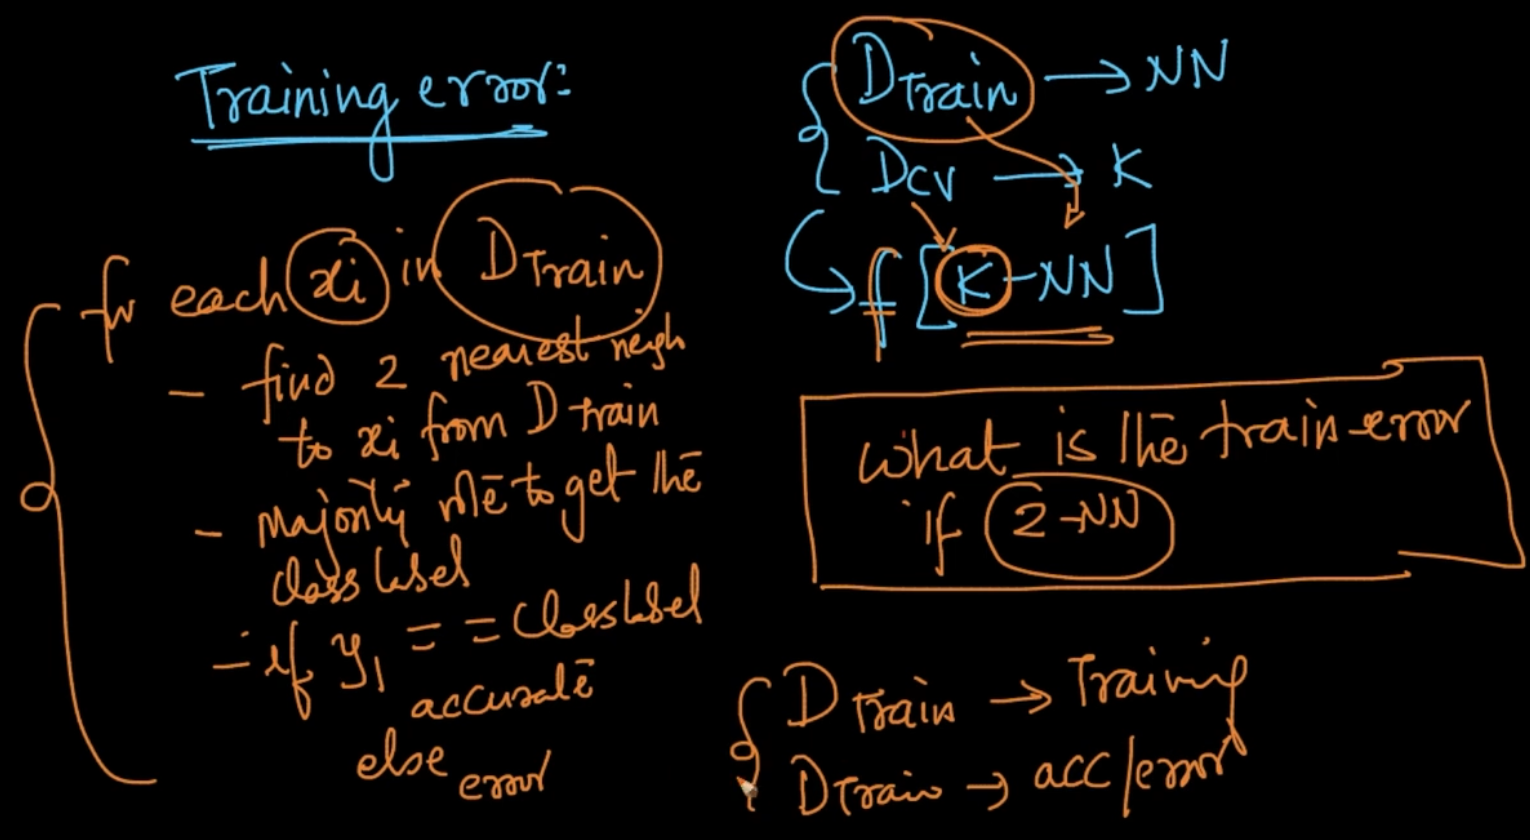 Training error:
for each xi in DTrain
- find 2 nearest neigh
to xi from D train
- majority vote to get the
class label
- if y1 == class label
accurate
else error
DTrain → NN
Dcv → K
f [K-NN]
What is the train error
if 2-NN
DTrain → Training
DTrain → acc/error